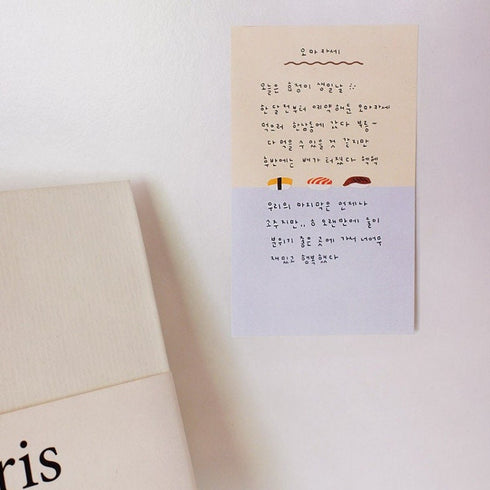 오마카세
오늘은 생일날
한 달 전부터 예약해둔 오마카세
먹으러 한남동에 갔다 부릉~
다 먹을 수 있을 것 같지만
후반에는 배가 터졌다 헥헥
우리의 마지막은 언제나
소주지만,, 오랜만에 둘이
분위기 좋은 곳에 가서 너어무
재밌고 행복했다
ris